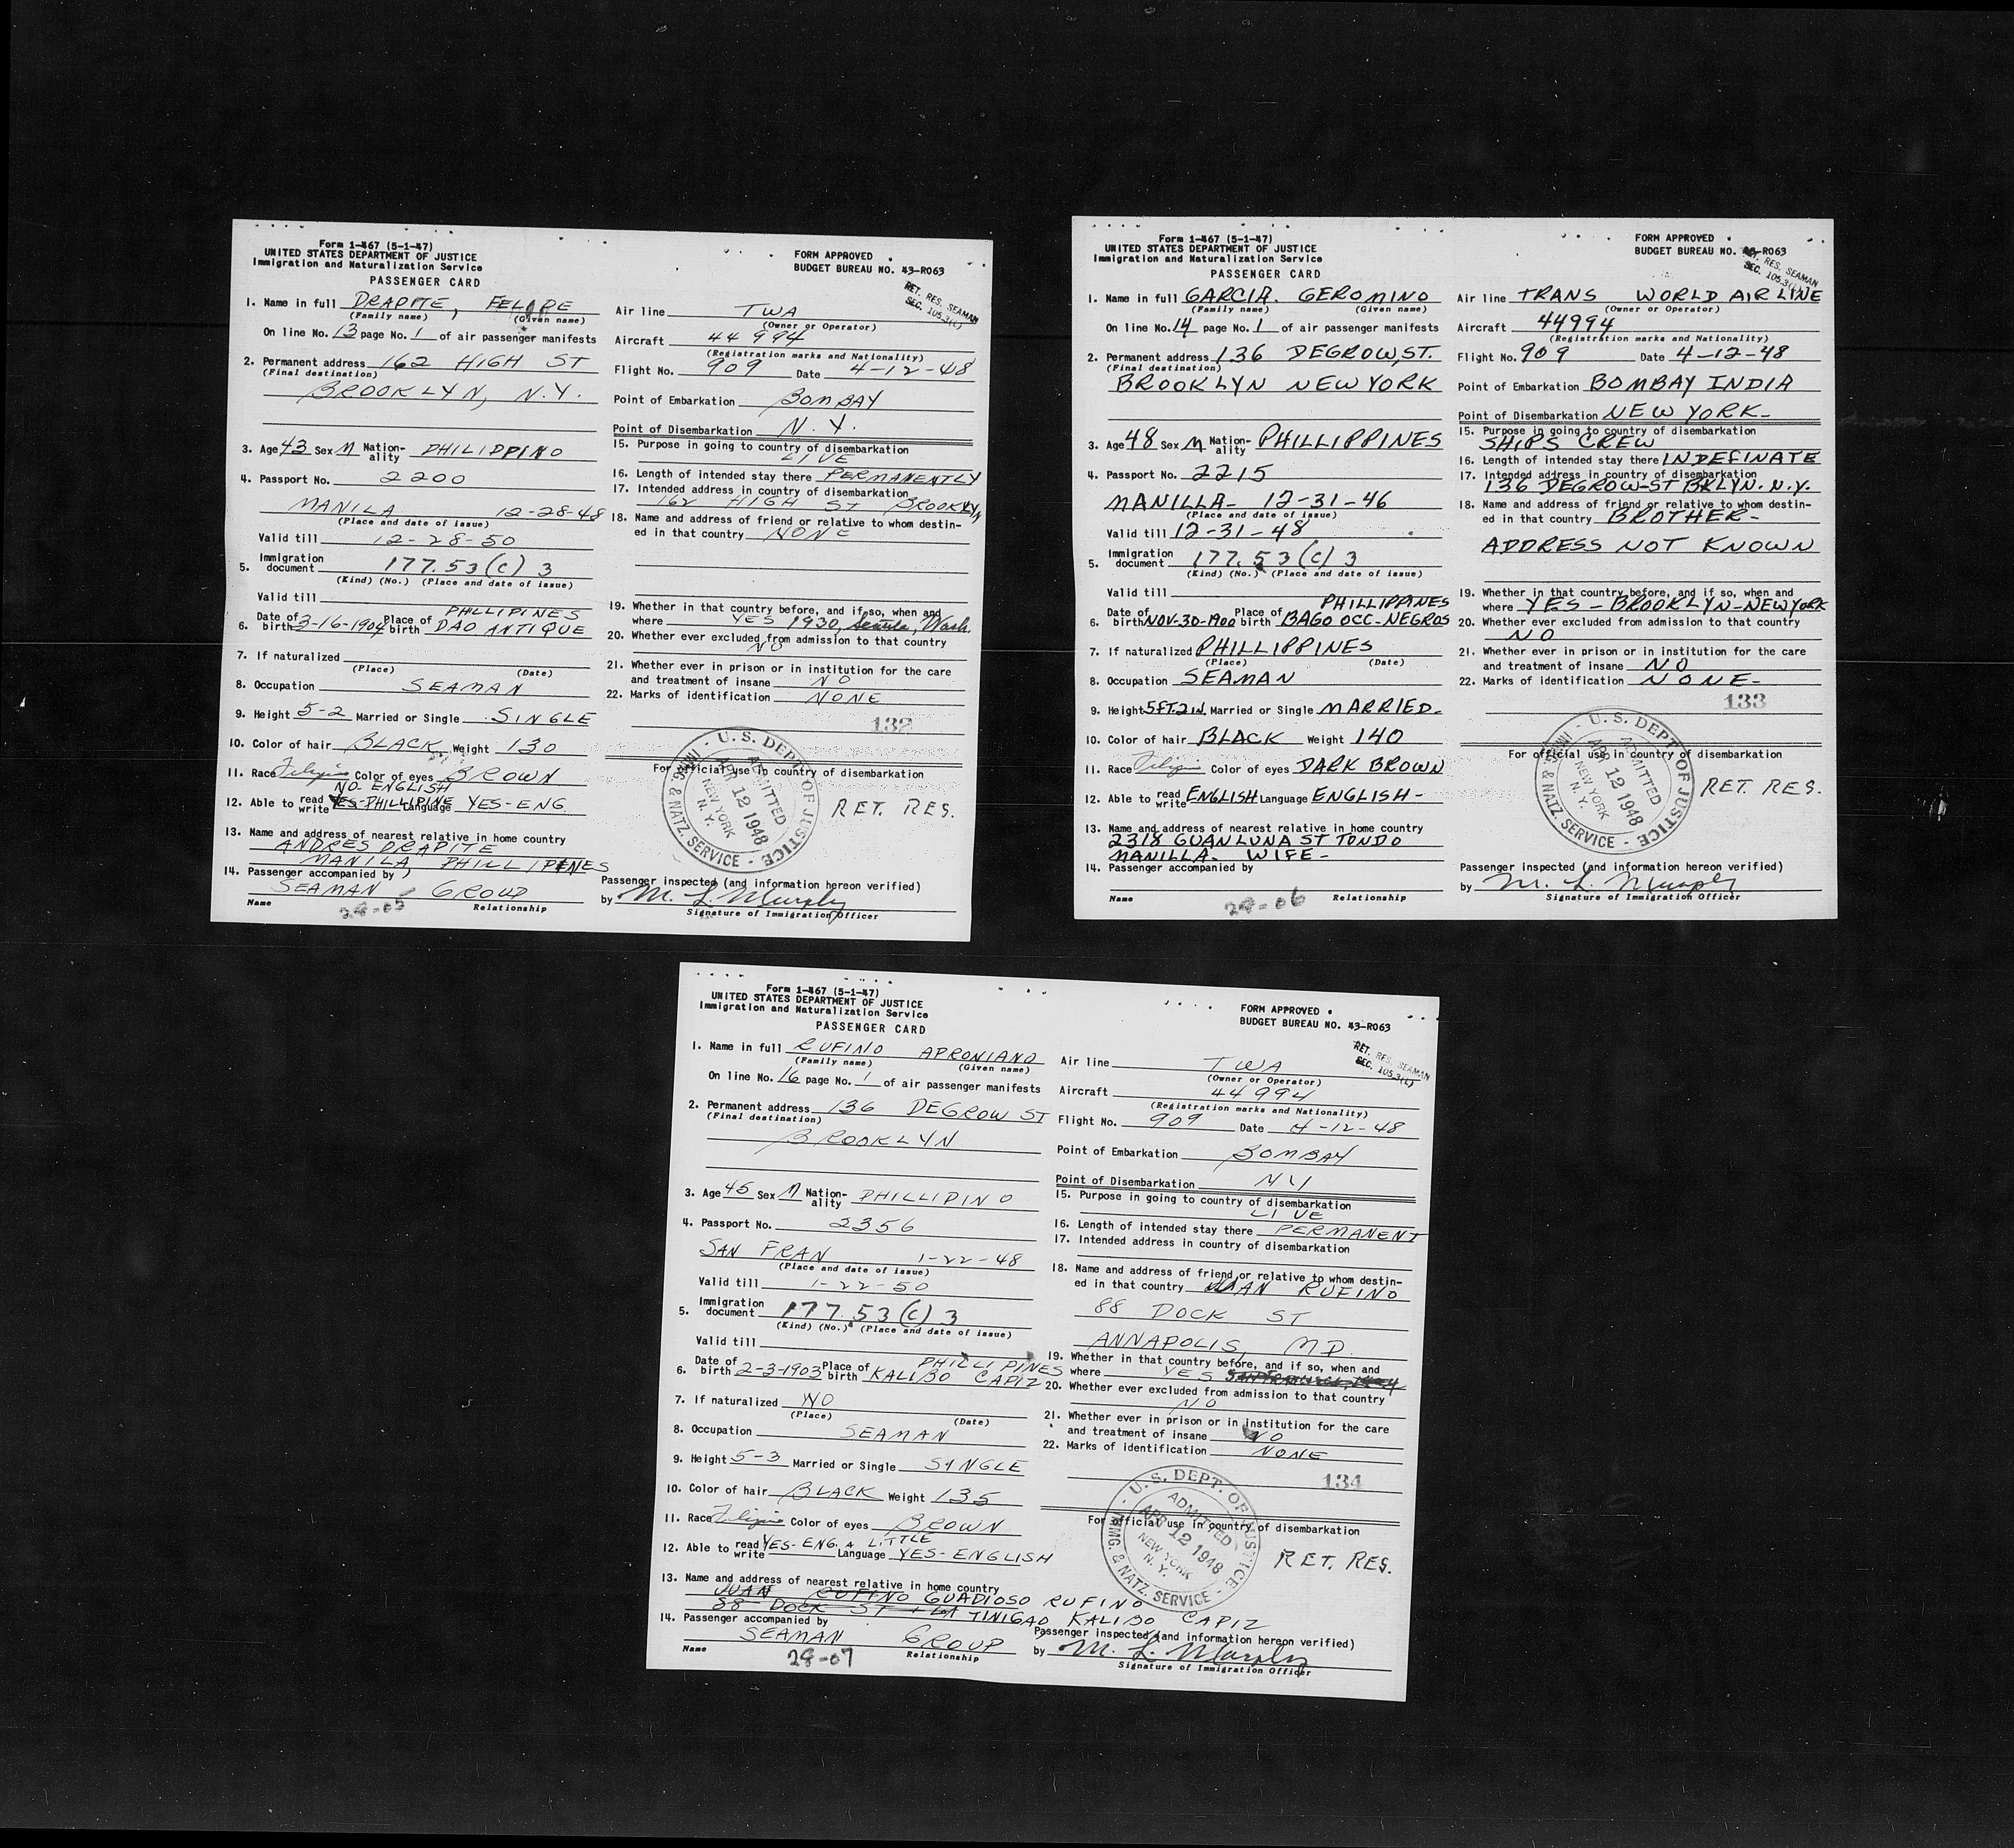 Form I-467 (5-1-47)
UNITED STATES DEPARTMENT OF JUSTICE
Immigration and Naturalization Service
PASSENGER CARD
FORM APPROVED
BUDGET BUREAU NO. 43-R063
RET. RES. SEAMAN
SEC. 105.3(c)
1. Name in full DRAPITE, FELIPE
(Family name) (Given name)
On line No. 13 page No. 1 of air passenger manifests
2. Permanent address 162 HIGH ST
(Final destination)
BROOKLYN, N.Y.
3. Age 43 Sex M Nation-ality PHILIPPINO
4. Passport No. 2200
MANILA 12-28-48
(Place and date of issue)
Valid till 12-28-50
5. Immigration document 177.53(c) 3
(Kind) (No.) (Place and date of issue)
Valid till
PHLLIPINES
6. Date of birth 3-16-1904 Place of birth DAO ANTIQUE
7. If naturalized
(Place) (Date)
8. Occupation SEAMAN
9. Height 5-2 Married or Single SINGLE
10. Color of hair BLACK Weight 130
11. Race Filipino Color of eyes BROWN
NO ENGLISH
12. Able to read write YES-PHILLIPINE Language YES-ENG.
13. Name and address of nearest relative in home country
ANDRES DRAPITE
MANILA PHILLIPINES
14. Passenger accompanied by
SEAMAN GROUP
Name Relationship
28-05
Air line TWA
(Owner or Operator)
Aircraft 44994
(Registration marks and Nationality)
Flight No. 909 Date 4-12-48
Point of Embarkation BOMBAY
Point of Disembarkation N.Y.
15. Purpose in going to country of disembarkation
LIVE
16. Length of intended stay there PERMANENTLY
17. Intended address in country of disembarkation
162 HIGH ST BROOKLYN
18. Name and address of friend or relative to whom destin-
ed in that country NONE
19. Whether in that country before, and if so, when and
where YES 1930, Seattle, Wash.
20. Whether ever excluded from admission to that country
NO
21. Whether ever in prison or in institution for the care
and treatment of insane NO
22. Marks of identification NONE
132
For official use in country of disembarkation
U. S. DEPT. OF JUSTICE - IMMG. & NATZ. SERVICE -
ADMITTED
APR 12 1948
NEW YORK
N. Y.
RET. RES.
Passenger inspected (and information hereon verified)
by M. L. Murphy
Signature of Immigration Officer
Form I-467 (5-1-47)
UNITED STATES DEPARTMENT OF JUSTICE
Immigration and Naturalization Service
PASSENGER CARD
FORM APPROVED
BUDGET BUREAU NO. 43-R063
RET. RES. SEAMAN
SEC. 105.3(c)
1. Name in full GARCIA. GEROMINO
(Family name) (Given name)
On line No. 14 page No. 1 of air passenger manifests
2. Permanent address 136 DEGROW, ST.
(Final destination)
BROOKLYN NEW YORK
3. Age 48 Sex M Nation-ality PHILLIPPINES
4. Passport No. 2215
MANILLA- 12-31-46
(Place and date of issue)
Valid till 12-31-48
5. Immigration document 177.53(c) 3
(Kind) (No.) (Place and date of issue)
Valid till
PHILLIPPINES
6. Date of birth NOV-30-1900 Place of birth BAGO OCC-NEGROS
7. If naturalized PHILLIPPINES
(Place) (Date)
8. Occupation SEAMAN
9. Height 5FT.2IN. Married or Single MARRIED-
10. Color of hair BLACK Weight 140
11. Race Filipino Color of eyes DARK BROWN
12. Able to read write ENGLISH Language ENGLISH-
13. Name and address of nearest relative in home country
2318 GUANLUNA ST TONDO
MANILLA- WIFE-
14. Passenger accompanied by
Name Relationship
28-06
Air line TRANS WORLD AIR LINE
(Owner or Operator)
Aircraft 44994
(Registration marks and Nationality)
Flight No. 909 Date 4-12-48
Point of Embarkation BOMBAY INDIA
Point of Disembarkation NEW YORK-
15. Purpose in going to country of disembarkation
SHIPS CREW
16. Length of intended stay there INDEFINATE
17. Intended address in country of disembarkation
136 DEGROW-ST BKLYN. N.Y.
18. Name and address of friend or relative to whom destin-
ed in that country BROTHER-
ADDRESS NOT KNOWN
19. Whether in that country before, and if so, when and
where YES - BROOKLYN-NEW YORK
20. Whether ever excluded from admission to that country
NO
21. Whether ever in prison or in institution for the care
and treatment of insane NO
22. Marks of identification NONE-
133
For official use in country of disembarkation
U. S. DEPT. OF JUSTICE - IMMG. & NATZ. SERVICE -
ADMITTED
APR 12 1948
NEW YORK
N. Y.
RET. RES.
Passenger inspected (and information hereon verified)
by M. L. Murphy
Signature of Immigration Officer
Form I-467 (5-1-47)
UNITED STATES DEPARTMENT OF JUSTICE
Immigration and Naturalization Service
PASSENGER CARD
FORM APPROVED
BUDGET BUREAU NO. 43-R063
RET. RES. SEAMAN
SEC. 105.3(c)
1. Name in full RUFINO APRONIANO
(Family name) (Given name)
On line No. 16 page No. 1 of air passenger manifests
2. Permanent address 136 DEGROW ST
(Final destination)
BROOKLYN
3. Age 45 Sex M Nation-ality PHILLIPINO
4. Passport No. 2356
SAN FRAN 1-22-48
(Place and date of issue)
Valid till 1-22-50
5. Immigration document 177.53(c) 3
(Kind) (No.) (Place and date of issue)
Valid till
PHILLIPINES
6. Date of birth 2-3-1903 Place of birth KALIBO CAPIZ
7. If naturalized NO
(Place) (Date)
8. Occupation SEAMAN
9. Height 5-3 Married or Single SINGLE
10. Color of hair BLACK Weight 135
11. Race Filipino Color of eyes BROWN
12. Able to read write YES-ENG. A LITTLE Language YES-ENGLISH
13. Name and address of nearest relative in home country
JUAN RUFINO GUADIOSO RUFINO
88 DOCK ST TINIGAO KALIBO CAPIZ
14. Passenger accompanied by
SEAMAN GROUP
Name Relationship
28-07
Air line TWA
(Owner or Operator)
Aircraft 44994
(Registration marks and Nationality)
Flight No. 909 Date 4-12-48
Point of Embarkation BOMBAY
Point of Disembarkation NY
15. Purpose in going to country of disembarkation
LIVE
16. Length of intended stay there PERMANENT
17. Intended address in country of disembarkation
18. Name and address of friend or relative to whom destin-
ed in that country JUAN RUFINO
88 DOCK ST
ANNAPOLIS, MD.
19. Whether in that country before, and if so, when and
where YES
20. Whether ever excluded from admission to that country
NO
21. Whether ever in prison or in institution for the care
and treatment of insane NO
22. Marks of identification NONE
134
For official use in country of disembarkation
U. S. DEPT. OF JUSTICE - IMMG. & NATZ. SERVICE -
ADMITTED
APR 12 1948
NEW YORK
N. Y.
RET. RES.
Passenger inspected (and information hereon verified)
by M. L. Murphy
Signature of Immigration Officer